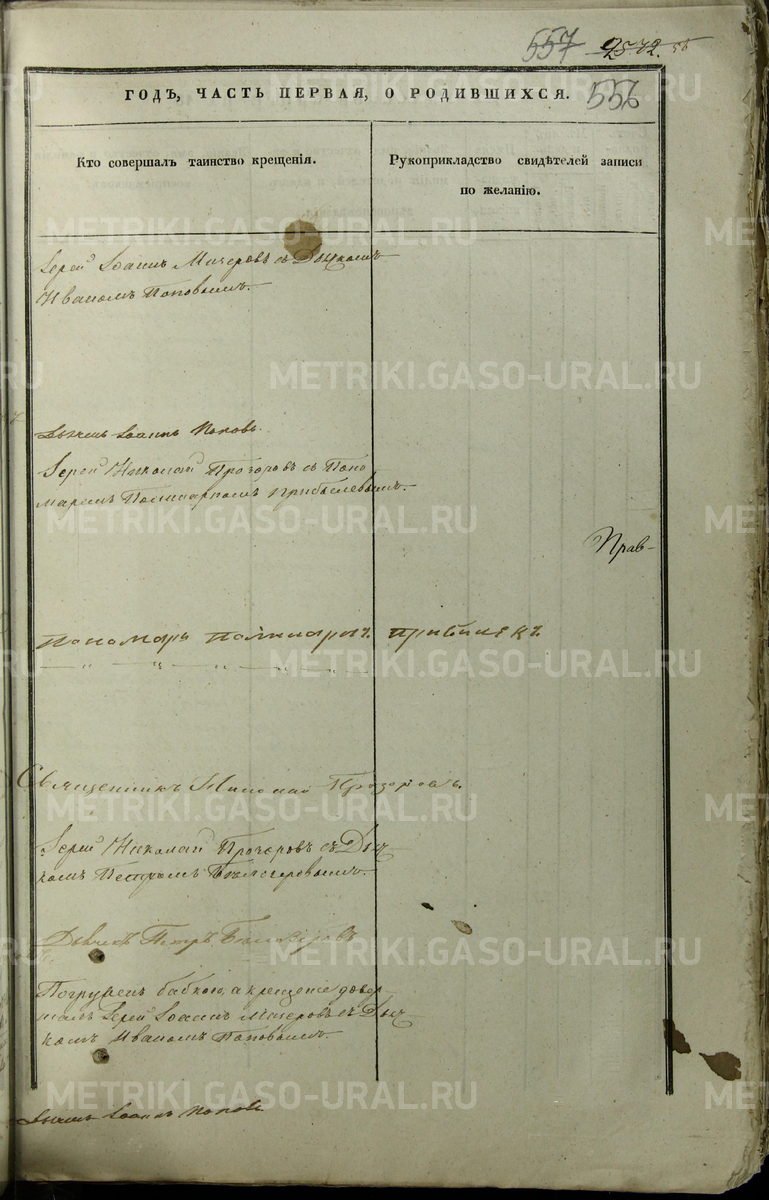 557 2572.
ГОДЪ, ЧАСТЬ ПЕРВАЯ, О РОДИВШИХСЯ. 556
Кто совершалъ таинство крещенія.
Рукоприкладство свидѣтелей записи
по желанію.
Іерей Іоаннъ Мичеровъ съ Дьячкомъ
Иваномъ Поповымъ.
Дьячекъ Іоаннъ Поповъ.
Іерей Николай Прозоровъ съ Поно
маремъ Поликарпомъ Прибылевымъ.
Прав-
Пономарь Поликарпъ
Священникъ Николай Прозоровъ.
Іерей Николай Прозоровъ съ Дьяч
комъ Петромъ
Дьячекъ Петръ
Погруженъ бабкою, а крещеніе довер
шалъ Іерей Іоаннъ Мичеровъ съ Дьяч
комъ Иваномъ Поповымъ.
Дьячекъ Іоаннъ Поповъ
METRIKI.GASO-URAL.RU